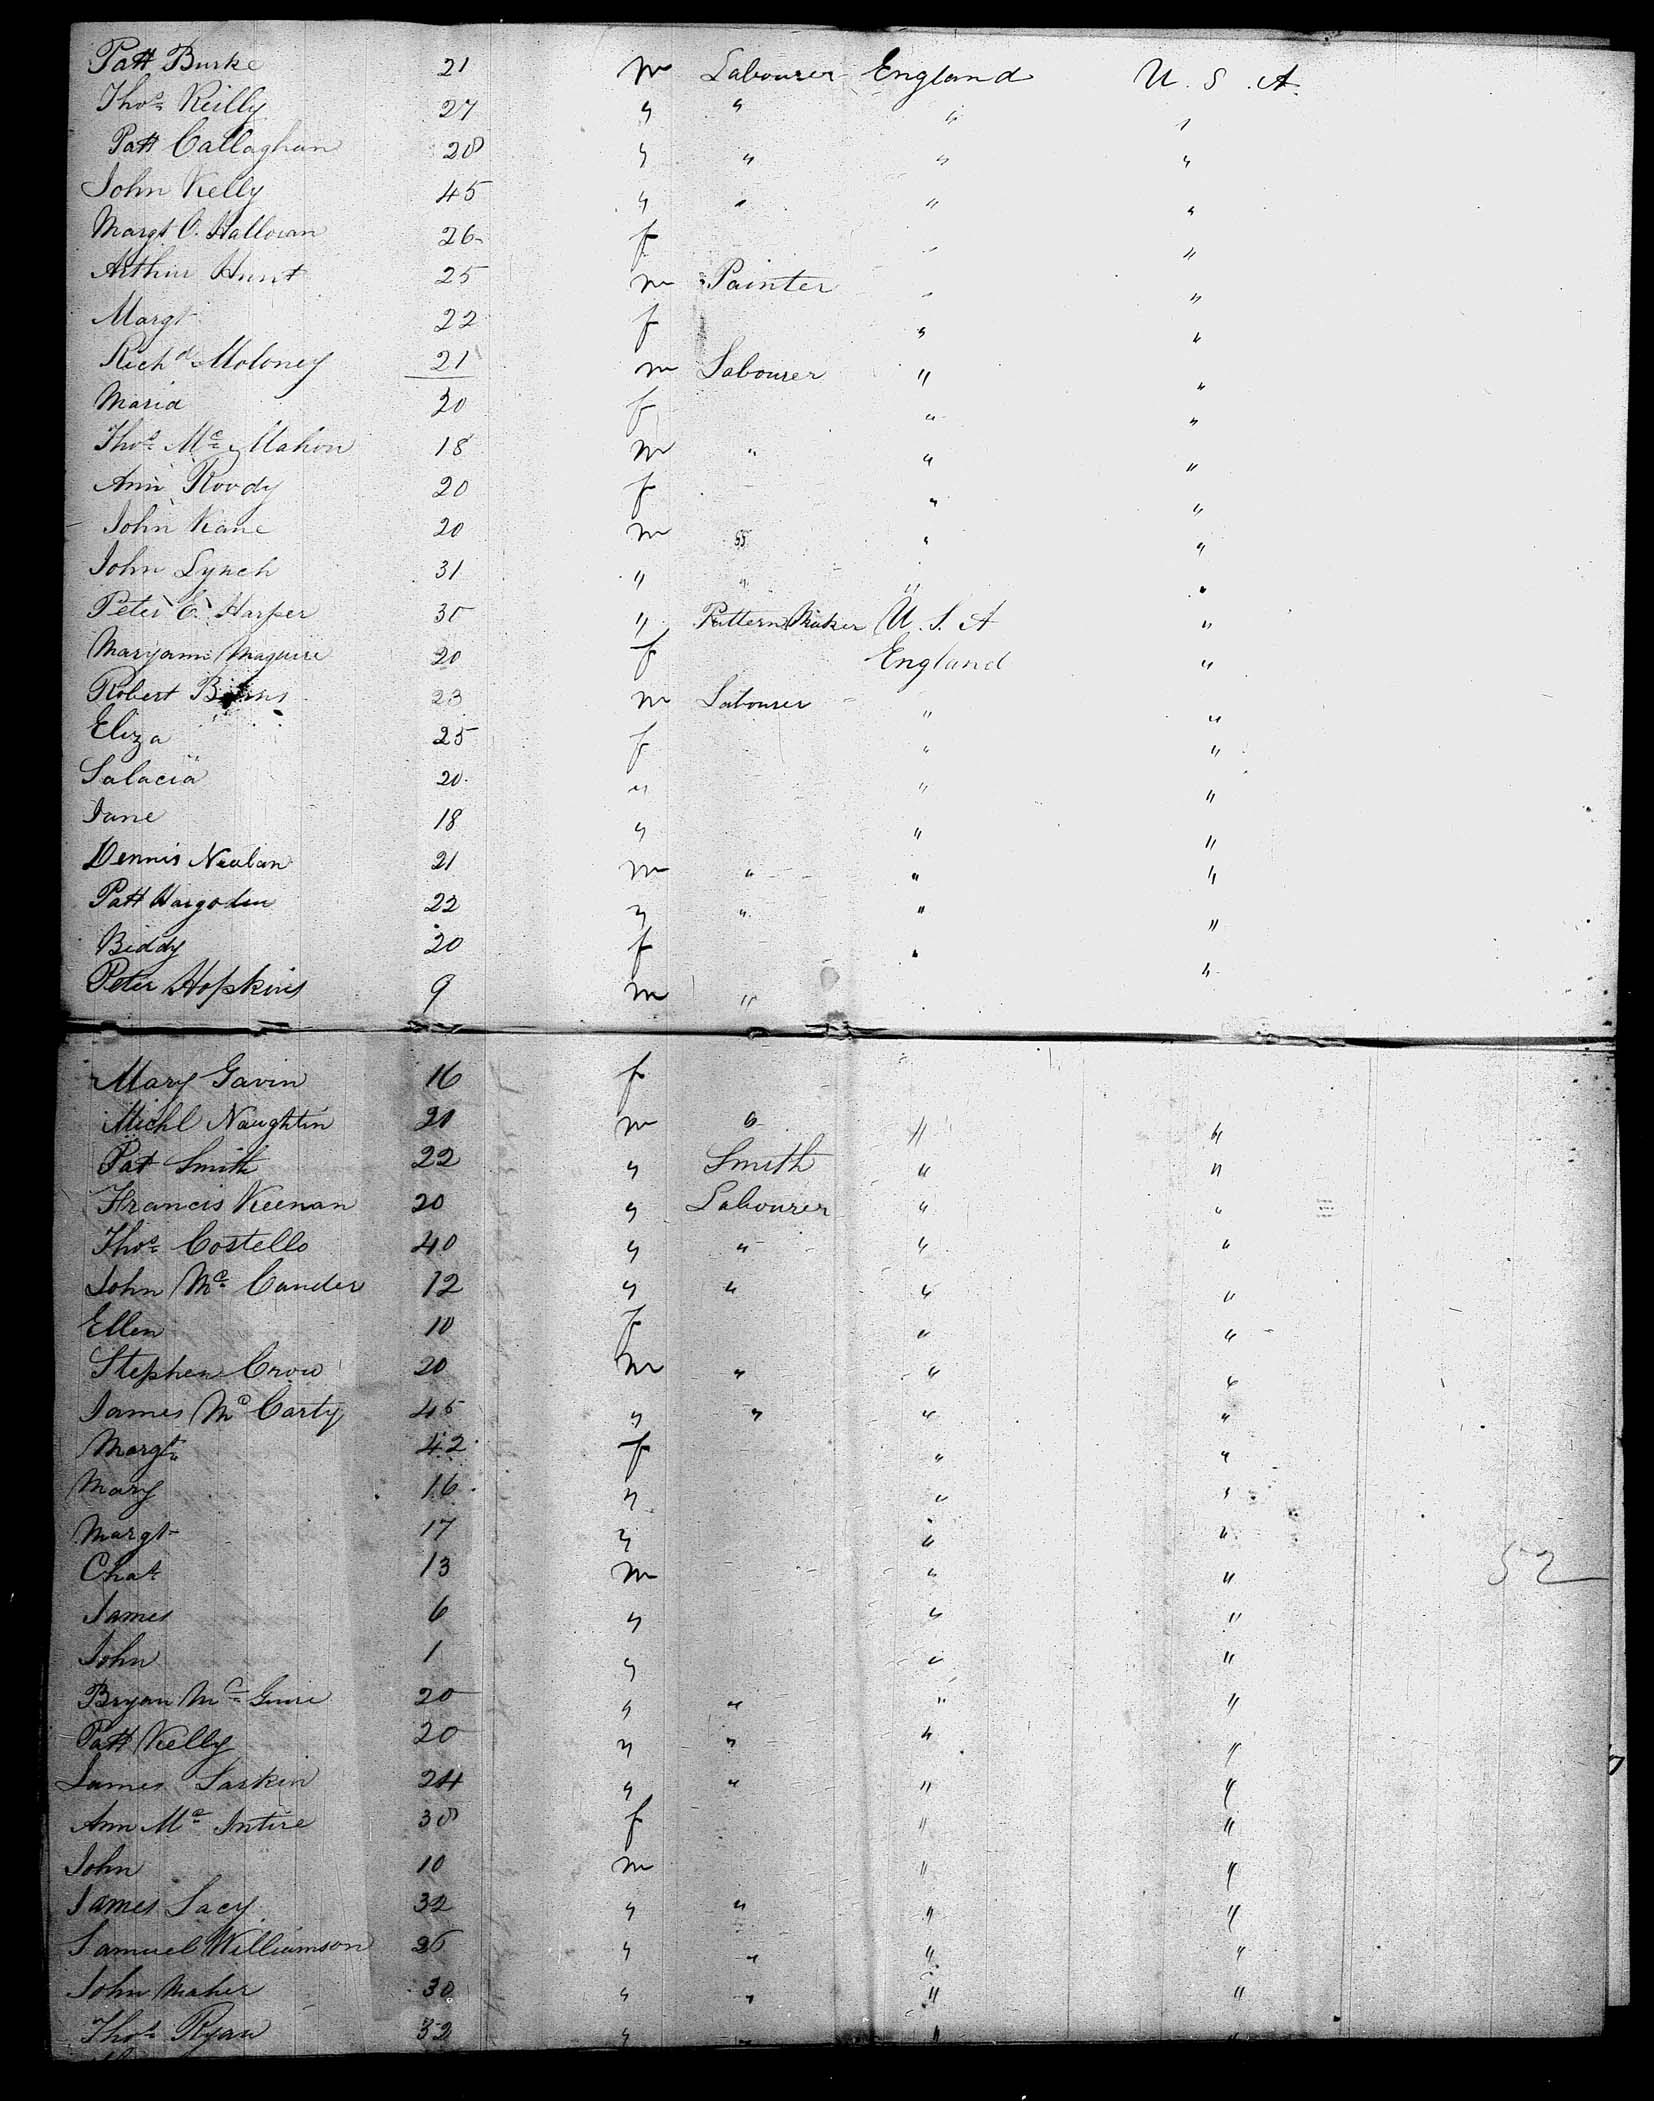 Patt Burke 21 m Labourer England U. S. A.
Thos. Reilly 27 " " " "
Patt Callaghan 28 " " " "
John Kelly 45 " " " "
Margt O. Halloran 26 f " "
Arthur Hunt 25 m Painter " "
Margt 22 f " "
Richd Moloney 21 m Labourer " "
Maria 20 f " "
Thos. Mc Mahon 18 m " " "
Ann Roody 20 f " "
John Kane 20 m " " "
John Lynch 31 " " " "
Peter C. Harper 30 " Pattern Maker U. S. A "
Maryann Maguire 20 f England "
Robert 23 m Labourer " "
Eliza 25 f " "
Salacia 20 " " "
Jane 18 " " "
Dennis 21 m " " "
Patt 22 " " " "
Biddy 20 f " "
Peter Hopkins 9 m "
Mary Gavin 16 f
Michl Naughtin 21 m " " "
Pat Smith 22 " Smith " "
Francis Keenan 20 " Labourer " "
Thos. Costello 40 " " " "
John Mc Cander 12 " " " "
Ellen 10 f " "
Stephen Crow 20 m " " "
James Mc Carty 45 " " " "
Margt. 42 f " "
Mary 16 " " "
Margt 17 " " "
Chas. 13 m " "
James 6 " " "
John 1 " " "
Bryan Mc Guire 20 " " " "
Patt Kelly 20 " " " "
James Larkin 24 " " " "
Ann Mc Intire 38 f " "
John 10 m " "
James Lacy 32 " " " "
Samuel Williamson 26 " " " "
John Maher 30 " " " "
Thos. Ryan 32 " " " "
52